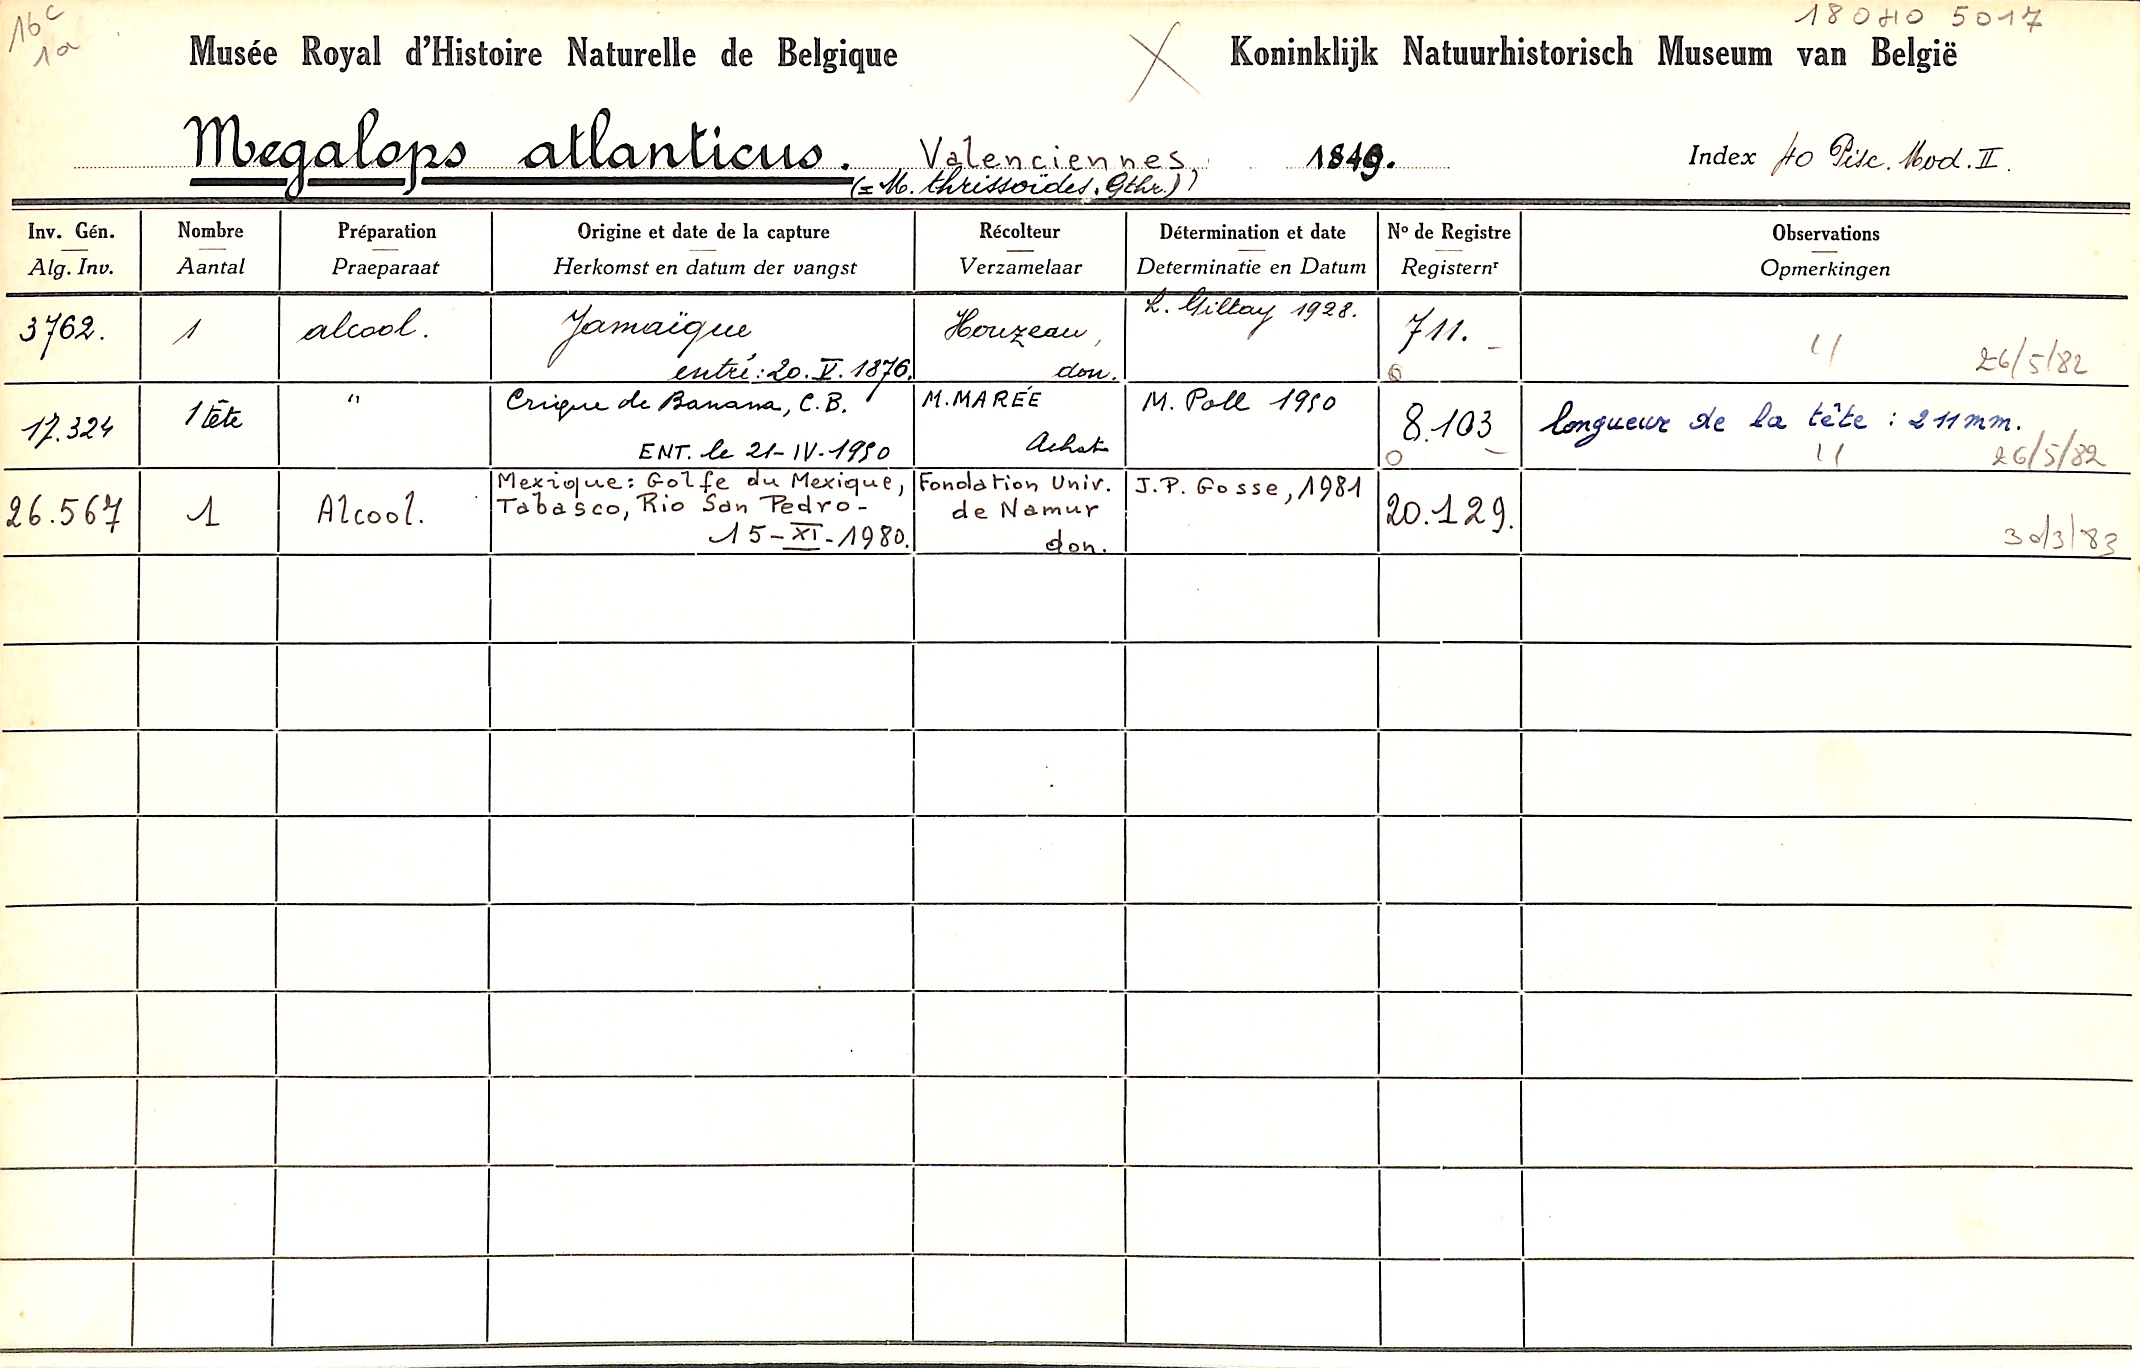 16c
1a
180810 5017
Musée Royal d'Histoire Naturelle de Belgique
Koninklijk Natuurhistorisch Museum van België
Megalops atlanticus. Valenciennes 1849.
(= M. thrissoïdes, Gthr.)
Index 40 Pisc. Mod. II.
Inv. Gén. Nombre Préparation Origine et date de la capture Récolteur Détermination et date No de Registre Observations
Alg. Inv. Aantal Praeparaat Herkomst en datum der vangst Verzamelaar Determinatie en Datum Registernr Opmerkingen
3762. 1 alcool. Jamaïque Houzeau, L. Giltay 1928. 711. —
entré: 20. V. 1876. don. 26/5/82
17.324 1 tête " Crique de Banana, C.B. M. MARÉE M. Poll 1950 8.103 longueur de la tête : 211 mm.
ENT. le 21-IV-1950 Achat 26/5/82
26.567 1 Alcool. Mexique: Golfe du Mexique, Fondation Univ. J.P. Gosse, 1981 20.129.
Tabasco, Rio San Pedro- de Namur
15-XI-1980. don. 30/3/83